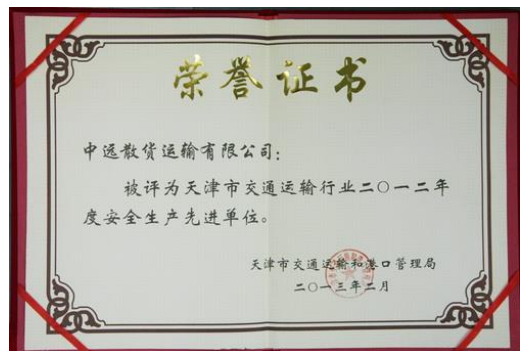 荣誉证书
中远散货运输有限公司：
被评为天津市交通运输行业二〇一二年
度安全生产先进单位。
天津市交通运输和港口管理局
二〇一三年二月